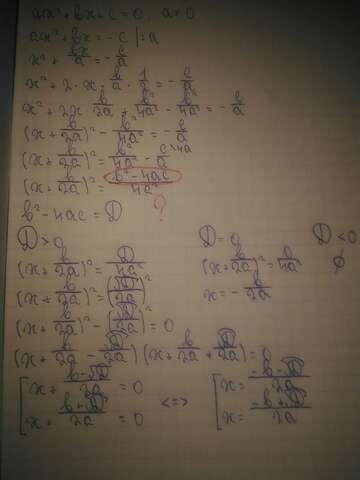 ax² + bx + c = 0, a ≠ 0
ax² + bx = -c | : a
x² + bx/a = -c/a
x² + 2 · x · b/a · 1/2 = -c/a
x² + 2x b/2a + b²/4a² - b²/4a² = -c/a
(x + b/2a)² - b²/4a² = -c/a
(x + b/2a)² = b²/4a² - c/a \4a
(x + b/2a)² = (b² - 4ac)/4a²
b² - 4ac = D ?
D > 0 D = 0 D < 0
(x + b/2a)² = D/4a² (x + b/2a)² = 0/4a² ∅
(x + b/2a)² = (√D/2a)² x = -b/2a
(x + b/2a)² - (√D/2a)² = 0
(x + b/2a - √D/2a)(x + b/2a + √D/2a) = 0
[ x + (b-√D)/2a = 0 <=> [ x = (-b-√D)/2a
x + (b+√D)/2a = 0 x = (-b+√D)/2a